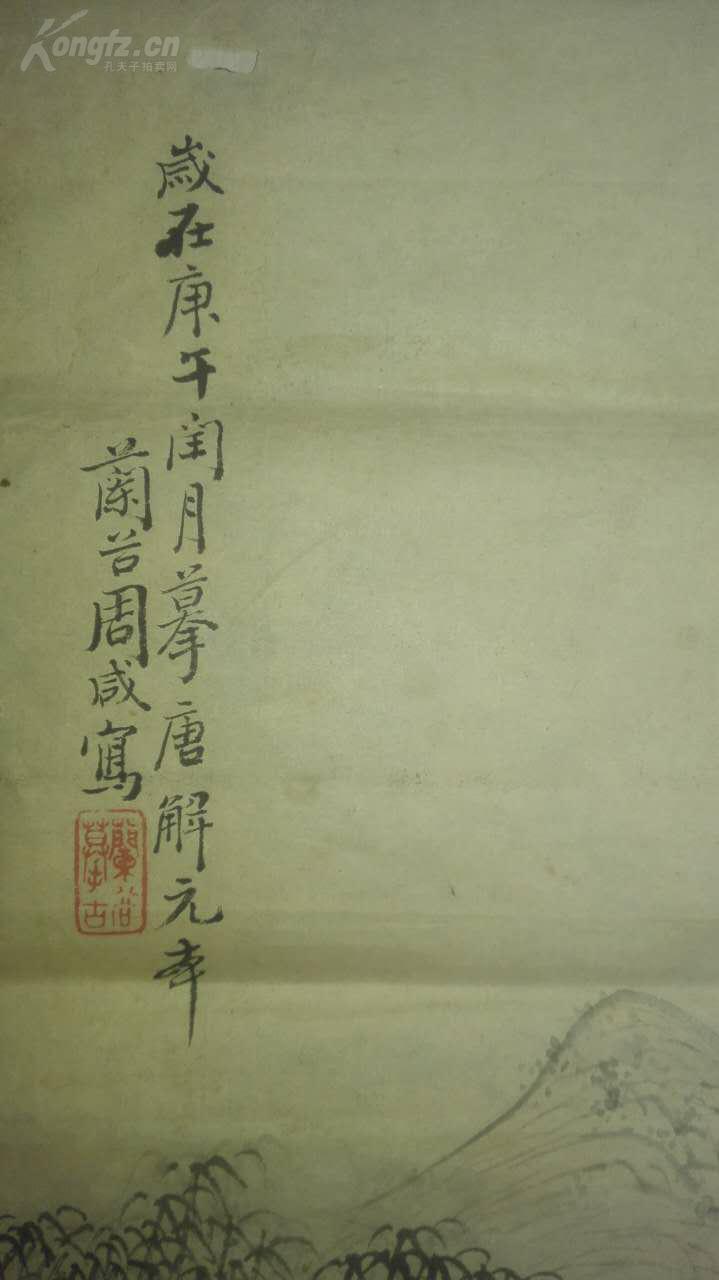 Kongfz.cn
孔夫子拍卖网
歲在庚午閏月摹唐解元本
蘭谷周咸寫
蘭谷
摹古